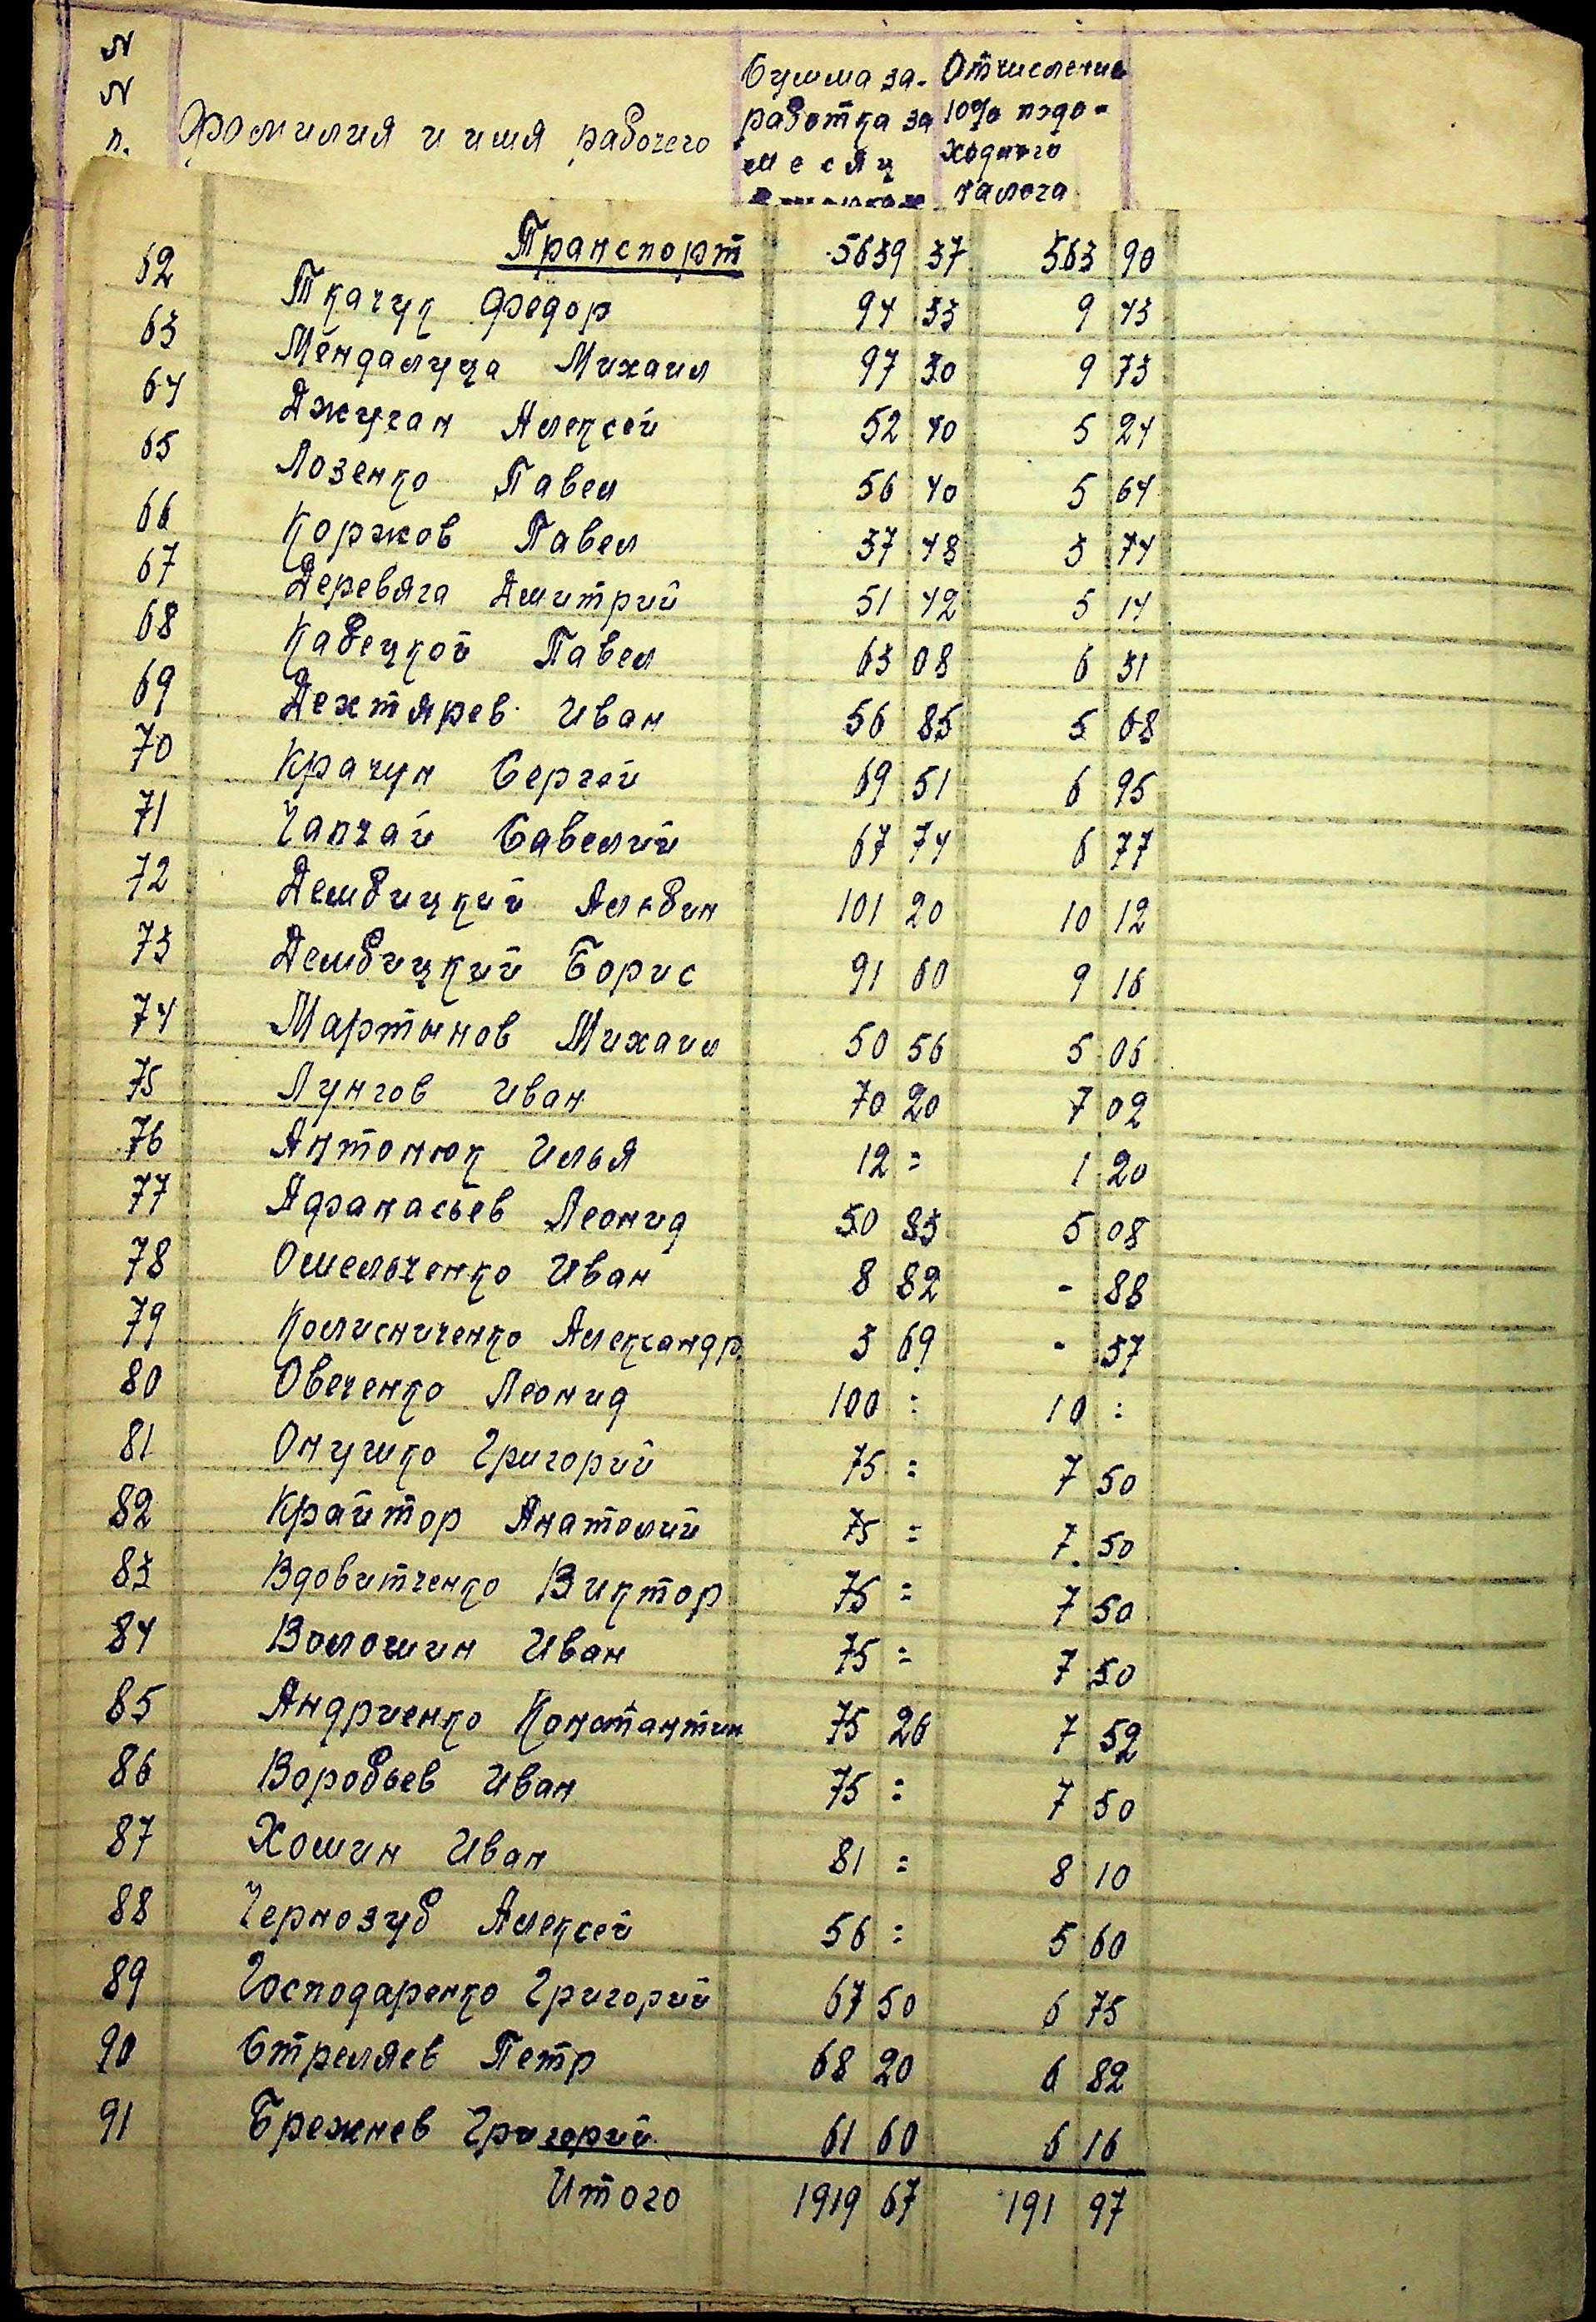 N
N
п.
Фамилия и имя рабочего
Сумма за-
работка за
месяц
Отчисление
10% подо-
ходного
налога
Транспорт 5639 37 563 90
62 Ткачук Федор 94 33 9 43
63 Мендалуца Михаил 97 30 9 73
64 Джуган Алексей 52 40 5 24
65 Лозенко Павел 56 40 5 64
66 Коржов Павел 37 48 3 74
67 Деревяга Дмитрий 51 42 5 14
68 Кабецкой Павел 63 08 6 31
69 Дехтярев Иван 56 85 5 68
70 Крачун Сергей 69 51 6 95
71 Чапчай Савелий 67 74 6 77
72 Дембицкий Альбин 101 20 10 12
73 Дембицкий Борис 91 60 9 16
74 Мартынов Михаил 50 56 5 06
75 Лунгов Иван 70 20 7 02
76 Антонюк Илья 12 = 1 20
77 Афанасьев Леонид 50 83 5 08
78 Омельченко Иван 8 82 - 88
79 Колисниченко Александр 3 69 - 37
80 Овеченко Леонид 100 = 10 =
81 Онушко Григорий 75 = 7 50
82 Крайтор Анатолий 75 = 7 50
83 Вдовитченко Виктор 75 = 7 50
84 Волошин Иван 75 = 7 50
85 Андриенко Константин 75 26 7 52
86 Воробьев Иван 75 = 7 50
87 Хошин Иван 81 = 8 10
88 Чернозуб Алексей 56 = 5 60
89 Господаренко Григорий 67 50 6 75
90 Стреляев Петр 68 20 6 82
91 Брежнев Григорий 61 60 6 16
Итого 1919 67 191 97